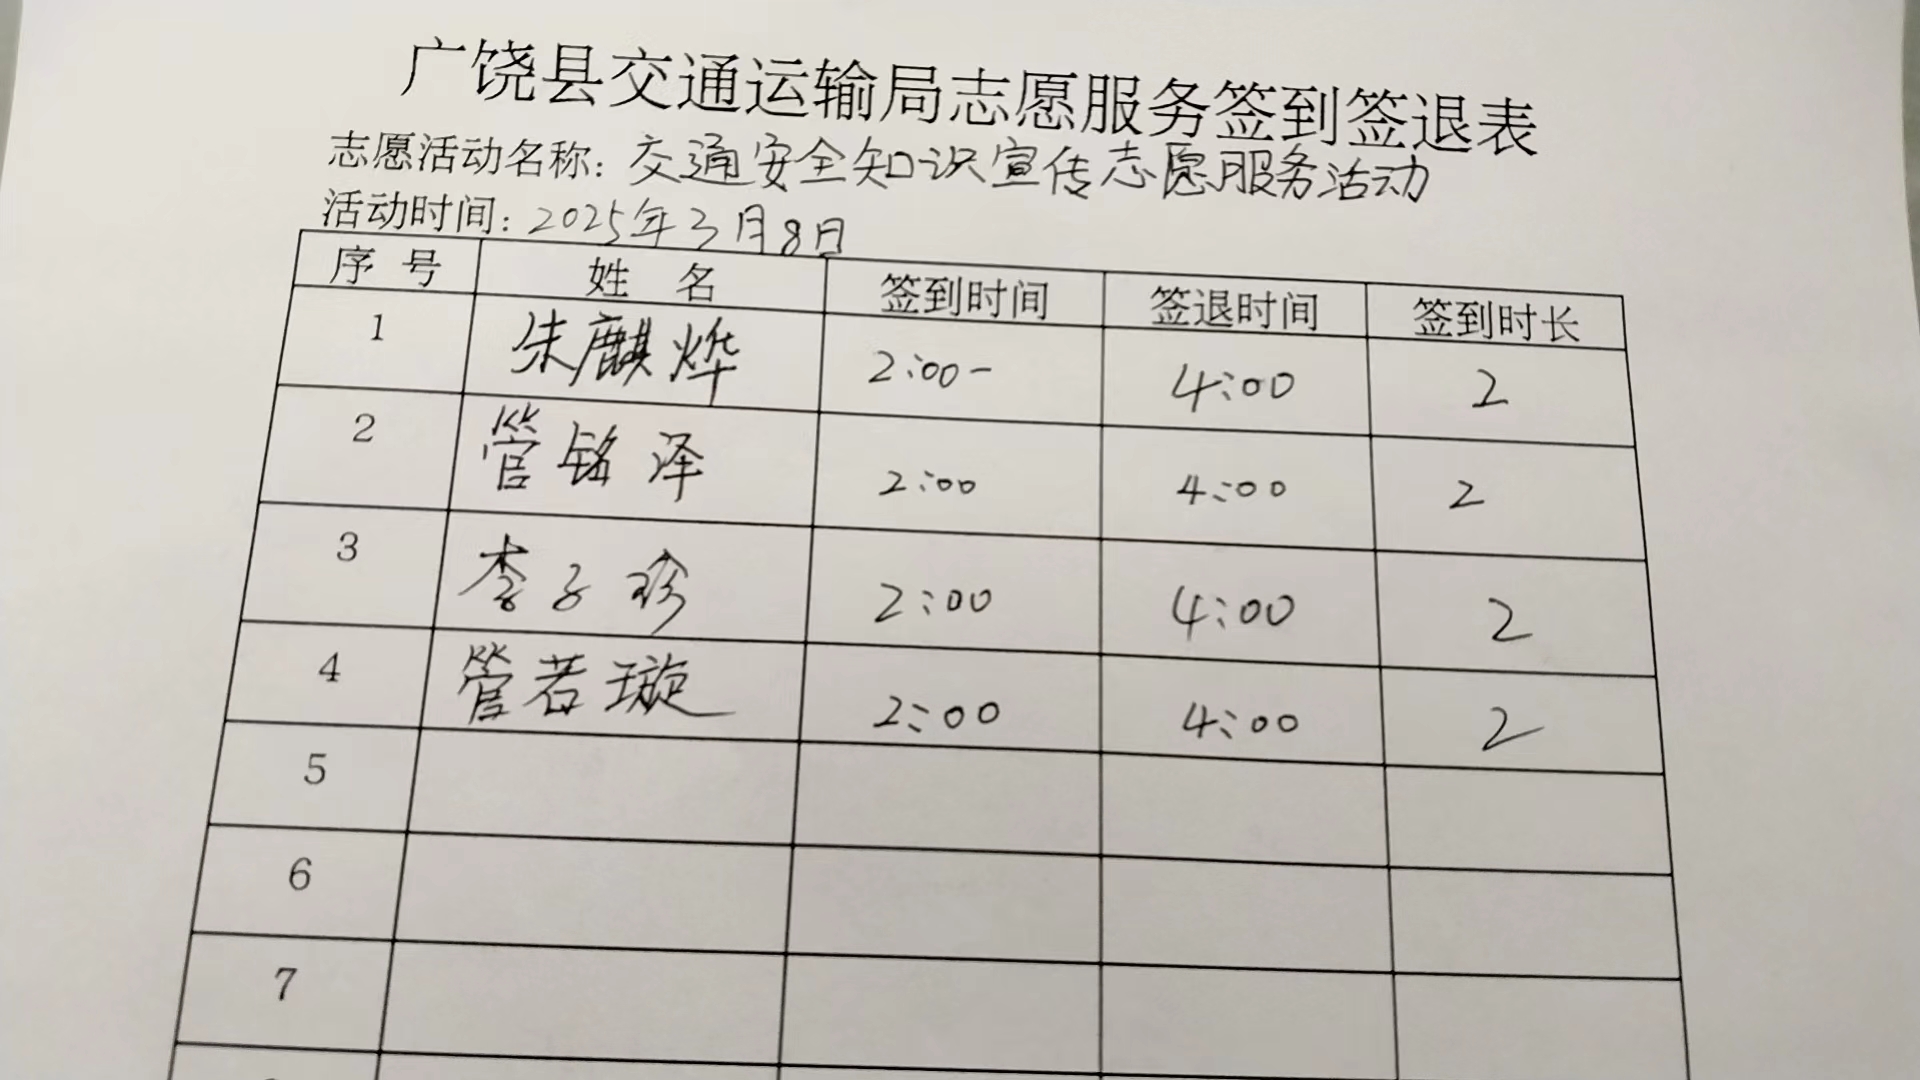 广饶县交通运输局志愿服务签到签退表
志愿活动名称：交通安全知识宣传志愿服务活动
活动时间：2025年3月8日
序 号 姓 名 签到时间 签退时间 签到时长
1 朱麒烨 2:00- 4:00 2
2 管铭泽 2:00 4:00 2
3 李子珍 2:00 4:00 2
4 管若璇 2:00 4:00 2
5
6
7